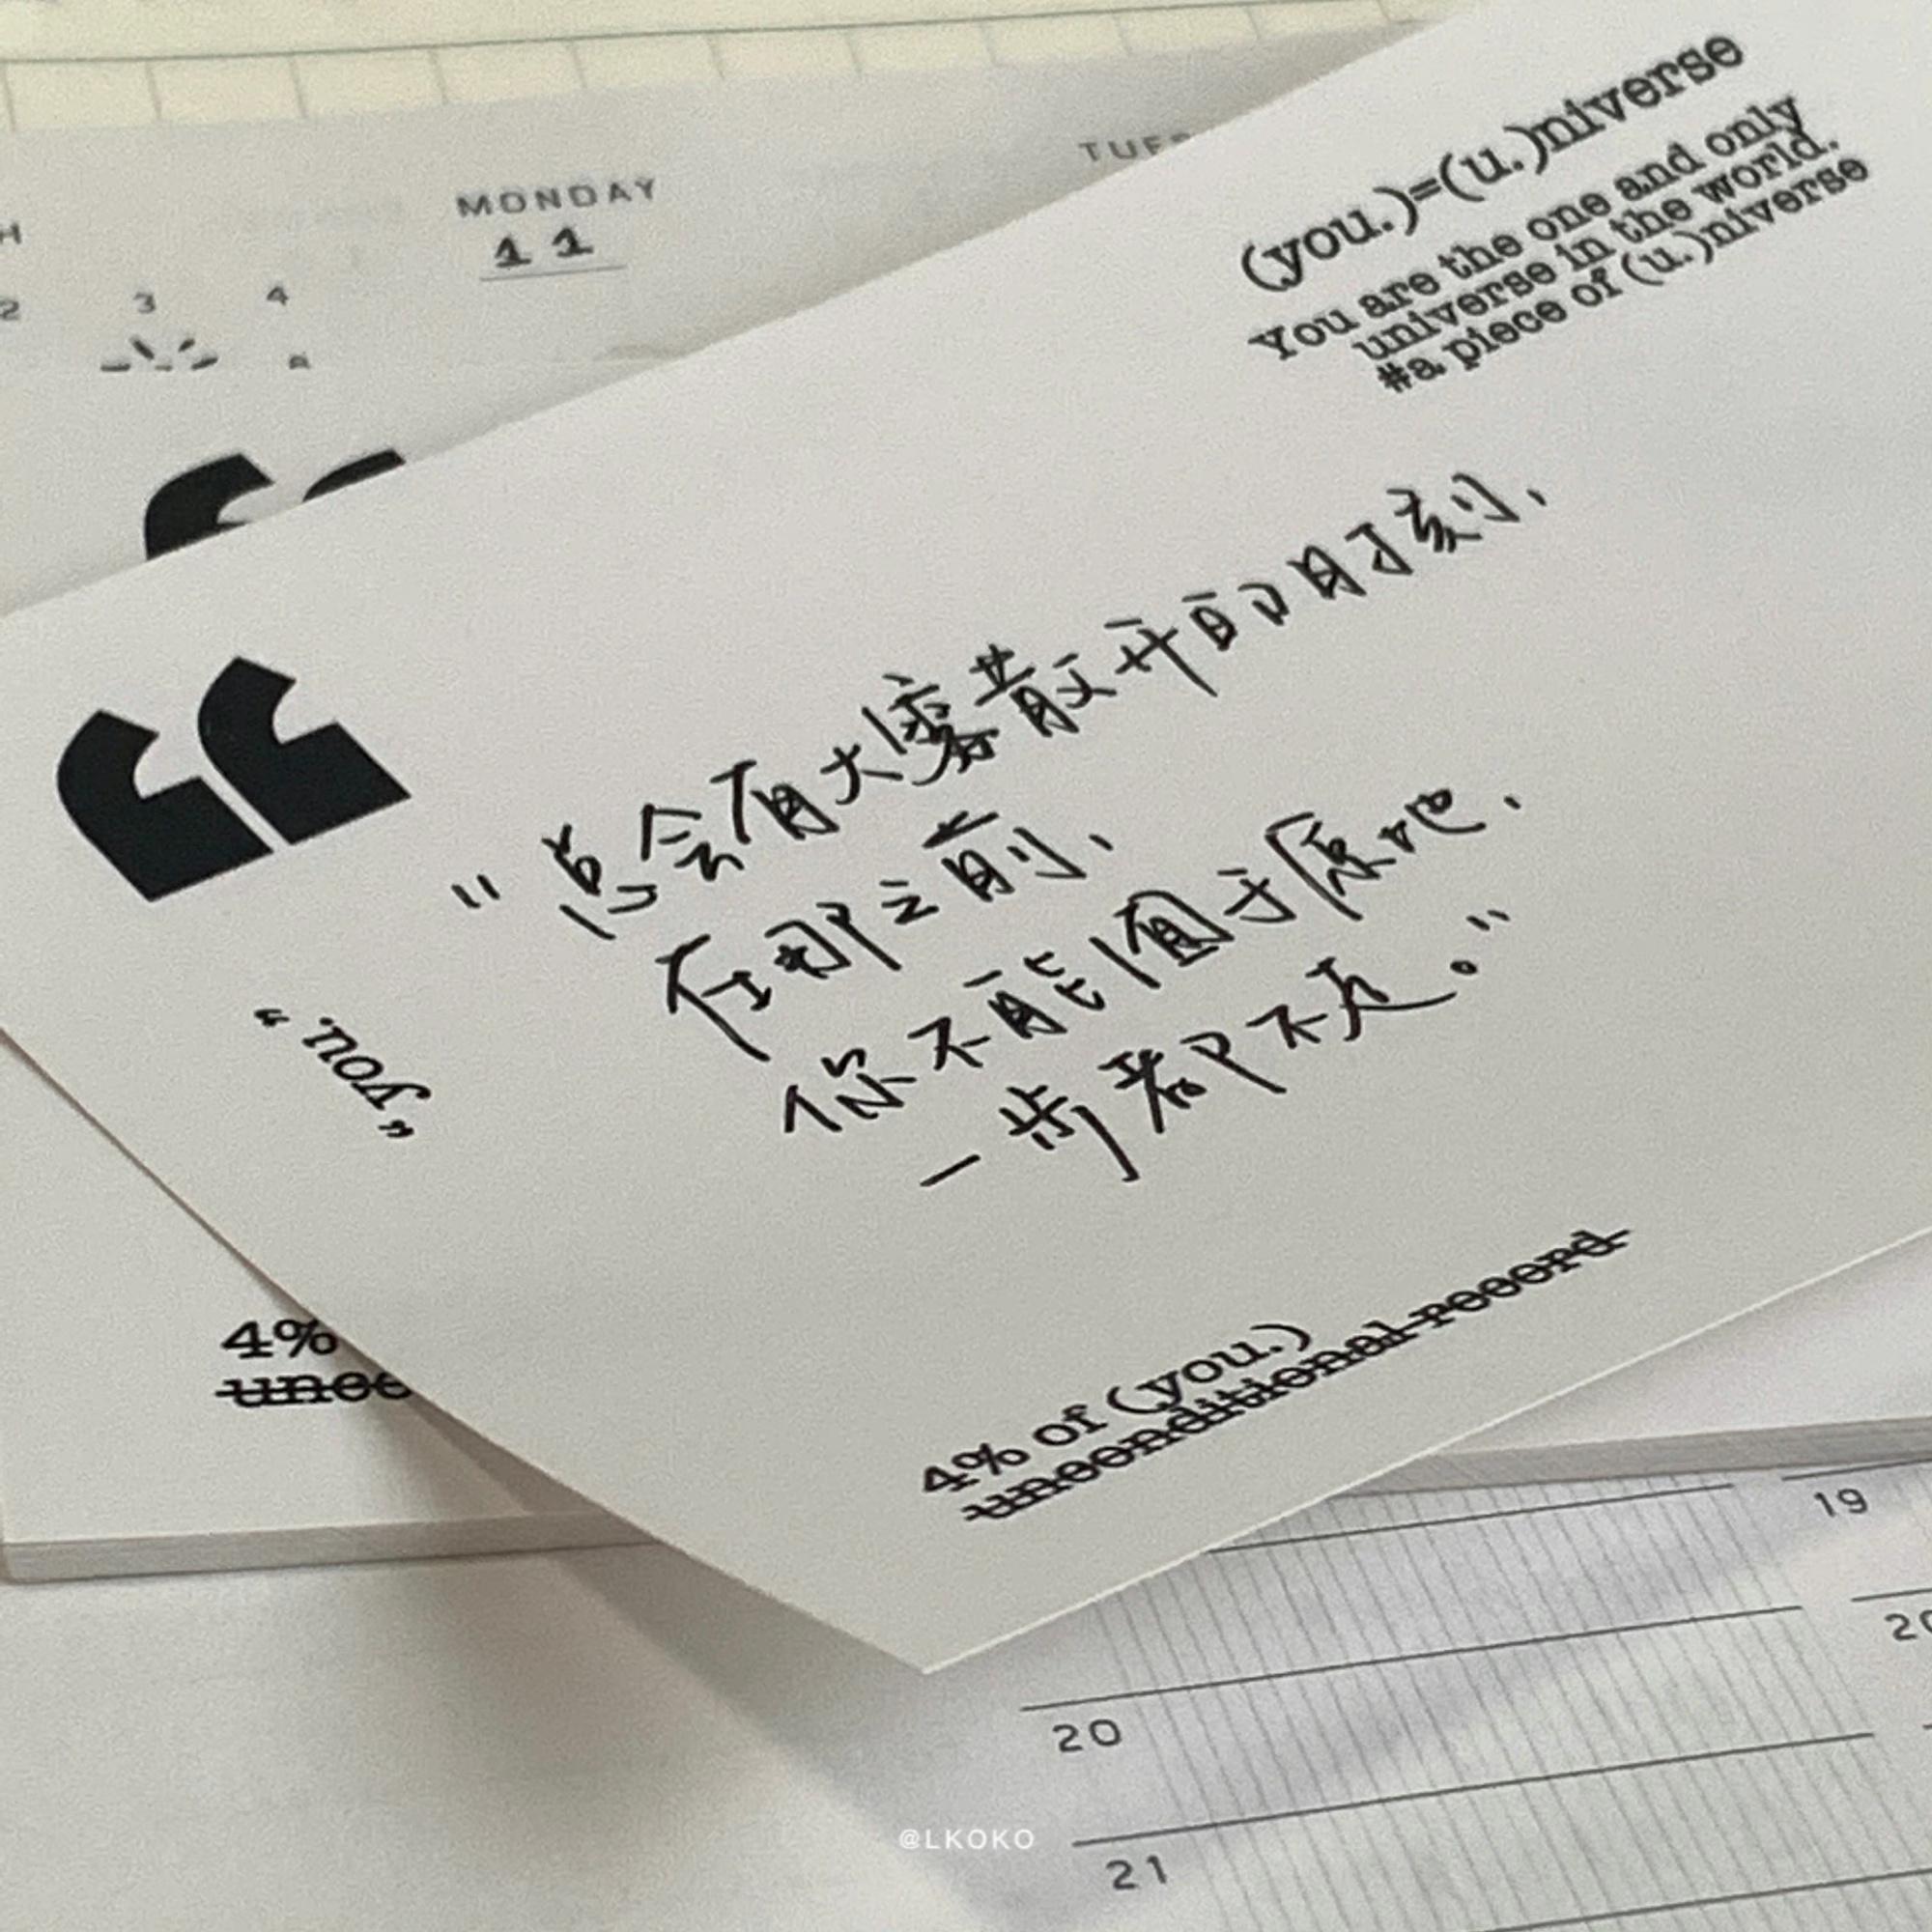 TUES
MONDAY
11
H
2 3 4
(you.)=(u.)niverse
You are the one and only
universe in the world.
#a piece of (u.)niverse
“
"总会有大雾散开的时刻、
在那之前、
你不能困于原地、
一步都不走。"
“you.”
4% of (you.)
unconditional record
4%
19
20
20
21
@LKOKO